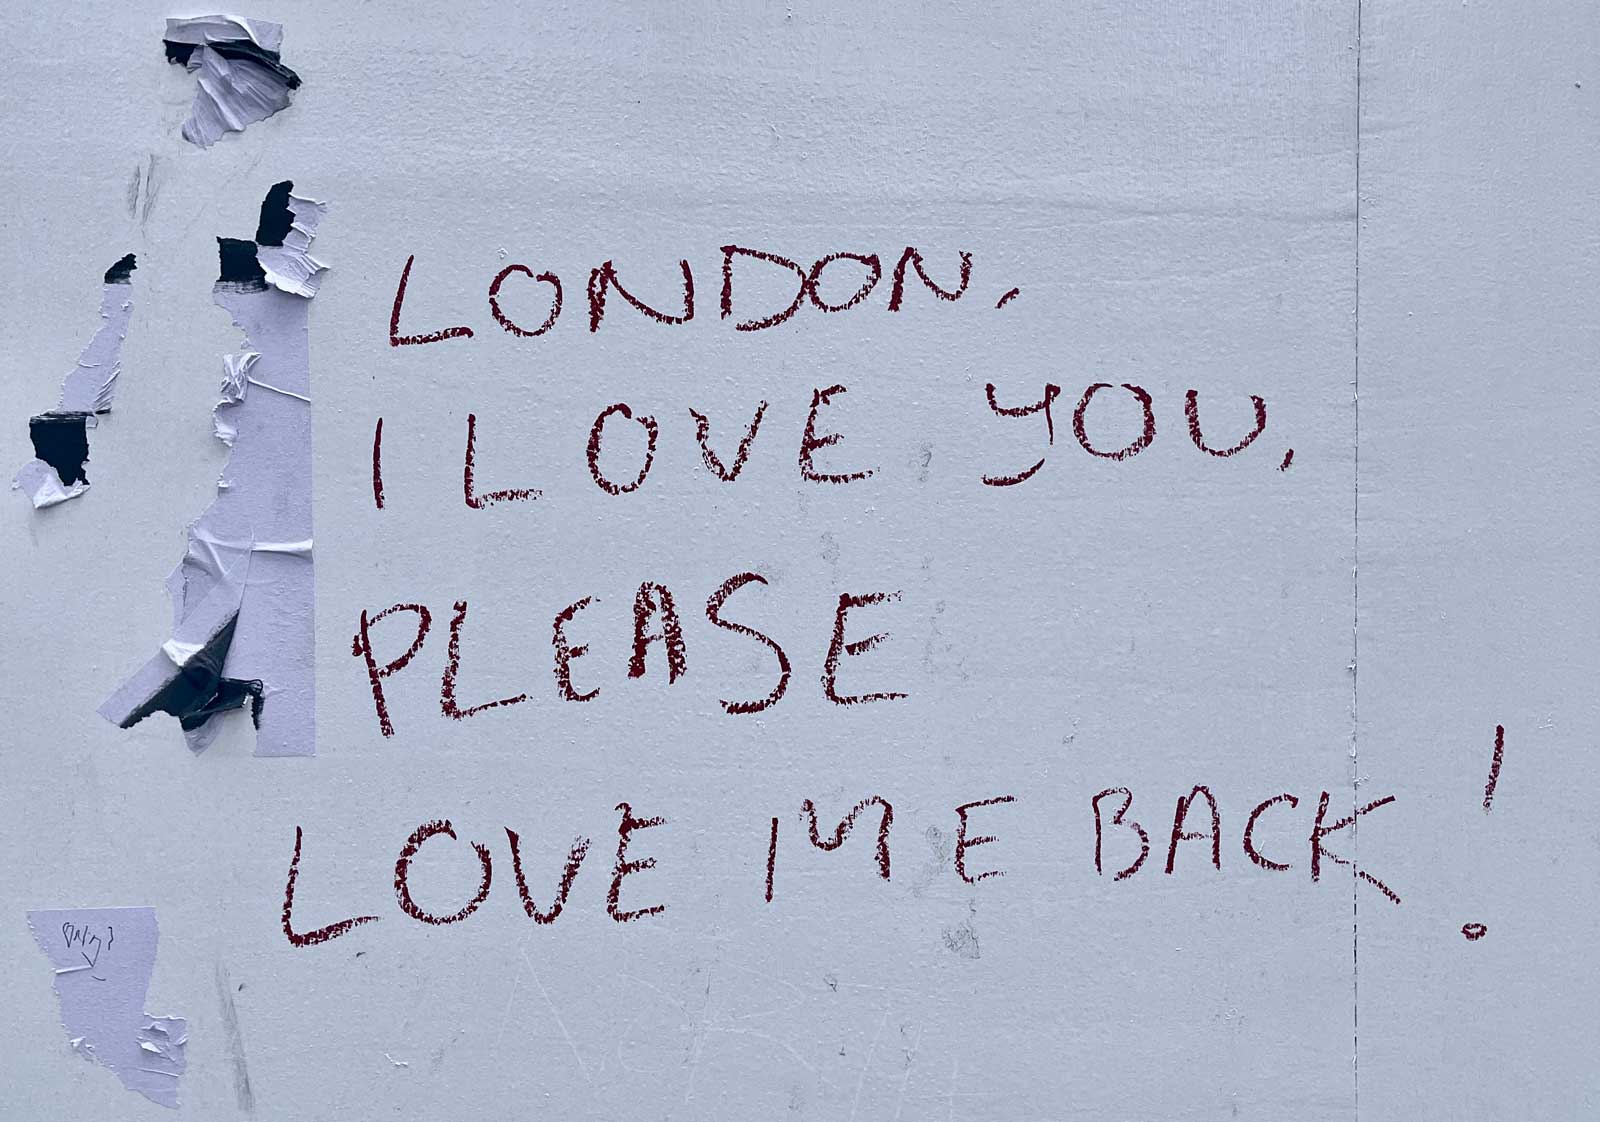 LONDON,
I LOVE YOU,
PLEASE
LOVE ME BACK!